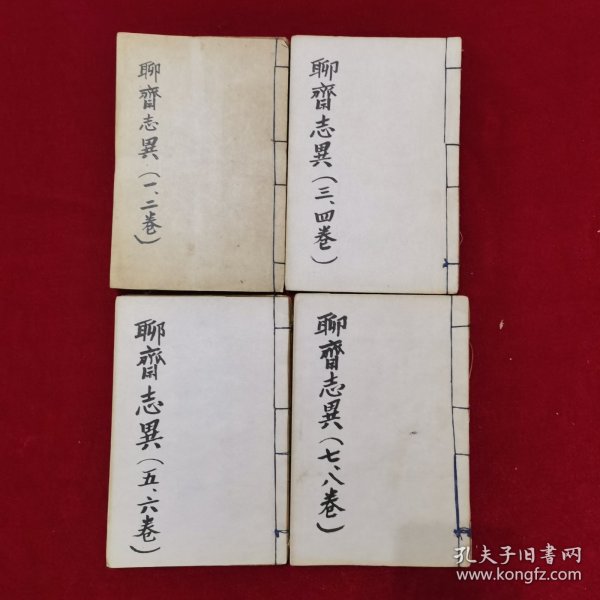 聊齋志異（一、二卷）
聊齋志異（三、四卷）
聊齋志異（五、六卷）
聊齋志異（七、八卷）
孔夫子旧書网
www.kongfz.com